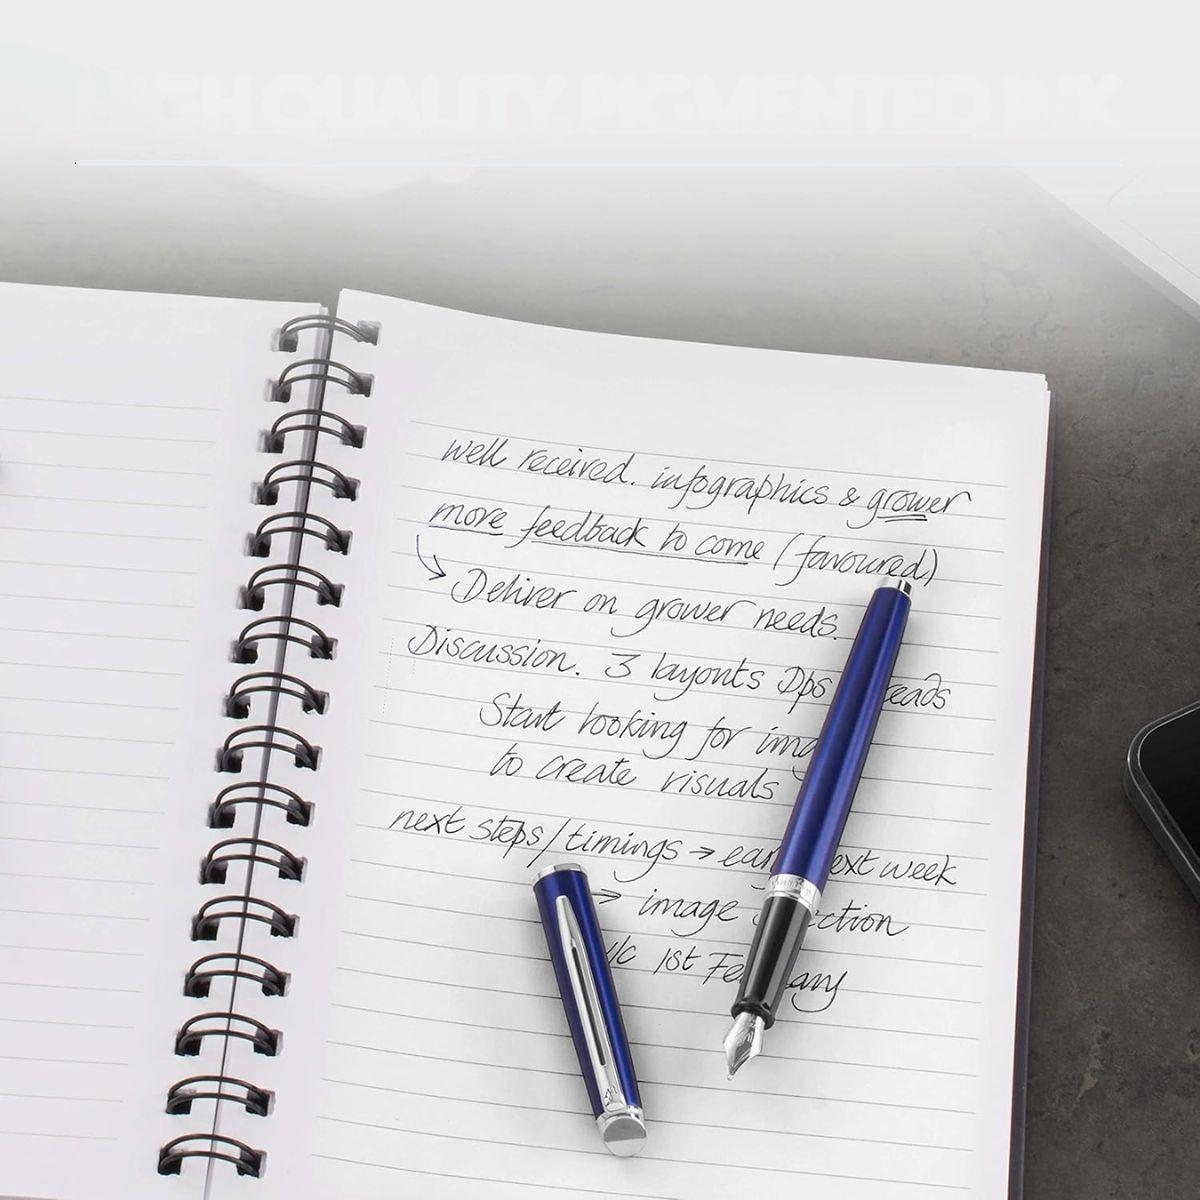 HIGH QUALITY, PIGMENTED INK
well received. infographics & grower
more feedback to come (favoured)
↳ Deliver on grower needs.
Discussion. 3 layouts Dps
Start looking for
to create visuals
next steps / timings → next week
→ image
w/c 1st February